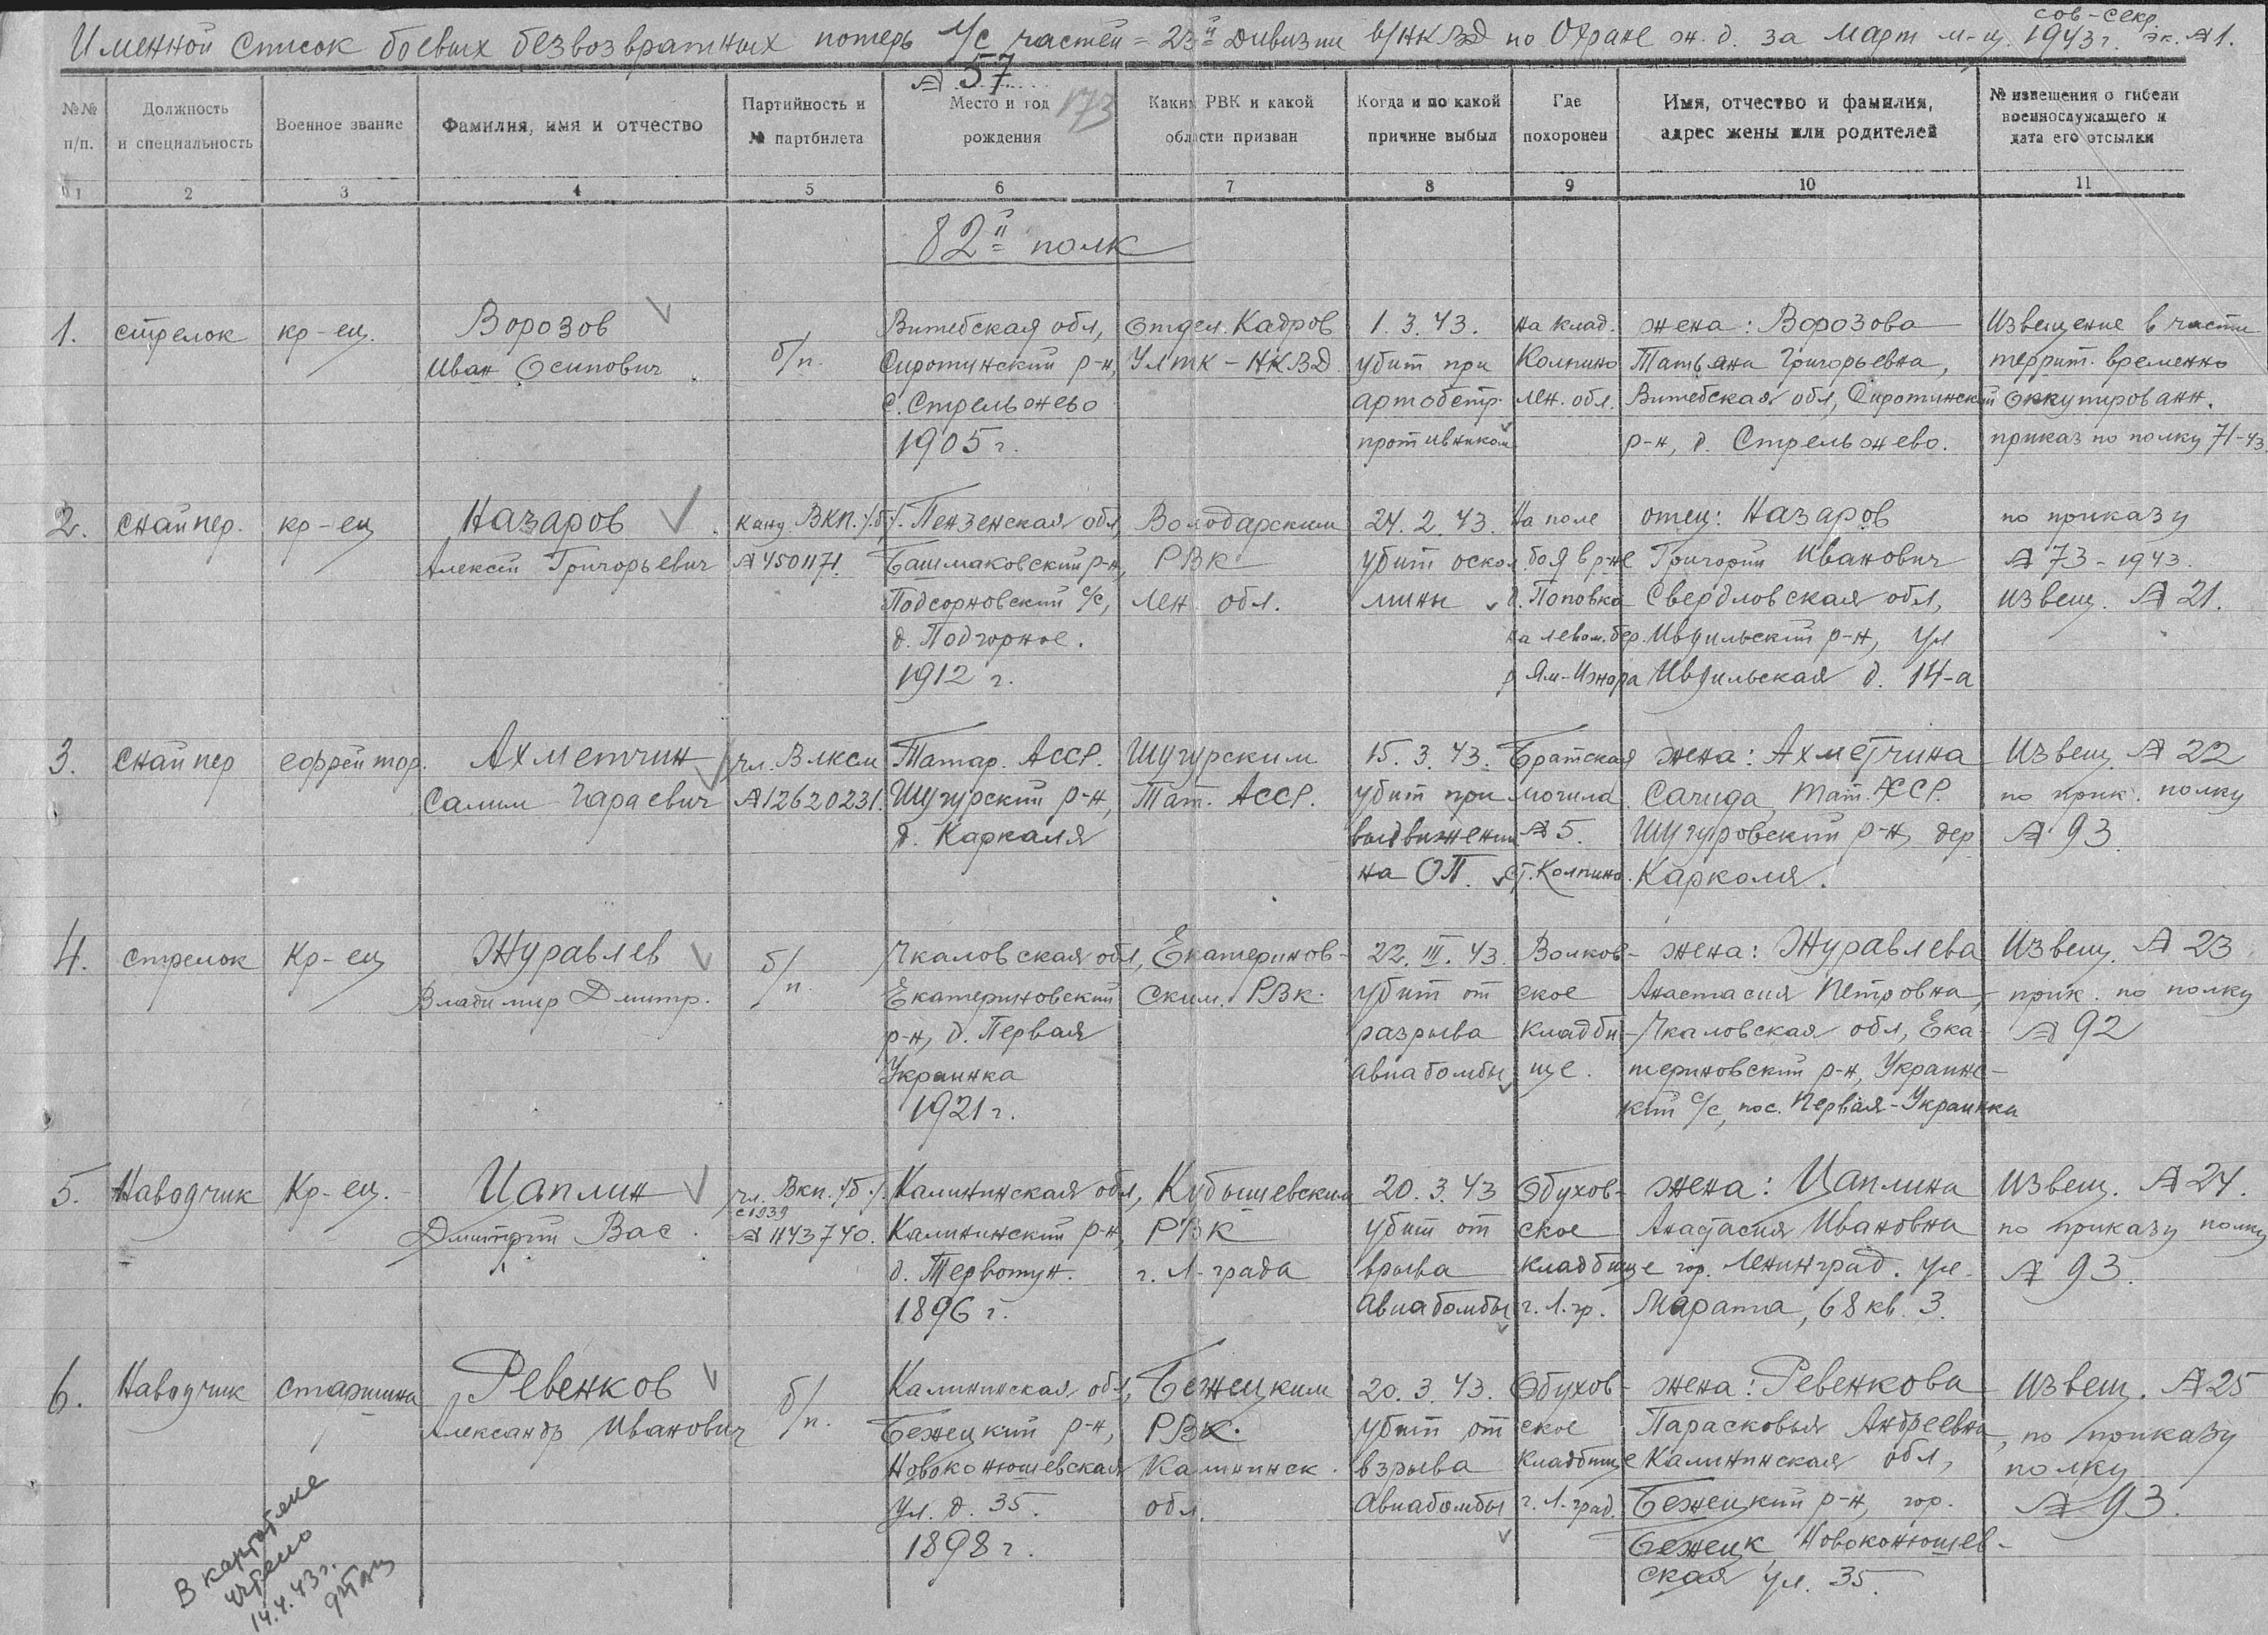 сов-секр.
Именной Список боевых безвозвратных потерь л/с частей 23й дивизии в/НКВД по Охране ж.д. за Март м-ц. 1943 г. эк. №1.
№ 57
173
№№ п/п.
Должность и специальность
Военное звание
Фамилия, имя и отчество
Партийность и № партбилета
Место и год рождения
Каким РВК и какой области призван
Когда и по какой причине выбыл
Где похоронен
Имя, отчество и фамилия, адрес жены или родителей
№ извещения о гибели военнослужащего и дата его отсылки
1 2 3 4 5 6 7 8 9 10 11
82й полк
1. стрелок кр-ец. Ворозов Витебская обл, отдел Кадров 1.3.43. на клад. жена: Ворозова Извещение в части
Иван Осипович б/п. Сиротинский р-н, УЛТК-НКВД. убит при Колпино Татьяна Григорьевна, террит. временно
с. Стрельжево артобстр. лен. обл. Витебская обл, Сиротинский оккупированн.
1905 г. противником р-н, д. Стрельжево. приказ по полку 71-43.
2. снайпер. кр-ец Назаров канд. ВКП./б/. Пензенская обл, Володарским 24.2.43. На поле отец: Назаров по приказу
Алексей Григорьевич №4501171. Башмаковский р-н, РВК убит оскол. боя в р-не Григорий Иванович № 73-1943.
Подгорновский с/с, лен. обл. мины д. Поповка Свердловская обл, извещ. № 21.
д. Подгорное. на левом. бер. Ивдильский р-н, ул
1912 г. р. Ям-Ижора Ивдильская д. 14-а
3. Снайпер ефрейтор. Ахметчин чл. Влксм Татар. АССР. Шугурским 15.3.43. Братская жена: Ахметчина Извещ. № 22
Салим Гараевич №12620231. Шугурский р-н, Тат. АССР. убит при могила Сагида, Тат. АССР. по прик. полку
д. Каркаля выдвижении № 5. Шугуровский р-н, дер № 93.
на ОП. ст. Колпино. Карколя.
4. стрелок Кр-ец Журавлев б/п. Чкаловская обл, Екатеринов- 22.III.43. Волков- жена: Журавлева Извещ. № 23.
Владимир Дмитр. Екатериновский ским. РВК. убит от ское Анастасия Петровна, прик. по полку
р-н, д. Первая разрыва кладби- Чкаловская обл, Ека- № 92
Украинка авиабомбы ще. териновский р-н, Украинс-
1921 г. кий с/с, пос. Первая-Украинка
5. Наводчик Кр-ец. Цаплин чл. Вкп./б/. Калининская обл, Куйбышевским 20.3.43 Обухов- жена: Цаплина Извещ. № 24.
с 1939
Дмитрий Вас. № 1143740. Калининский р-н, РВК убит от ское Анастасия Ивановна по приказу полку
д. г. Л-града врыва кладбище гор. Ленинград. ул. № 93.
1896 г. Авиабомбы г. Л.гр. Марата, 68 кв. 3.
6. Наводчик старшина Ревенков б/п. Калининская обл, Бежецким 20.3.43. Обухов- жена: Ревенкова Извещ. № 25
Александр Иванович Бежецкий р-н, РВК. убит от ское Парасковья Андреевна, по приказу
Новоконюшевская Калининск. взрыва кладбище Калининская обл, полку
ул. д. 35. обл. Авиабомбы г. Л.град. Бежецкий р-н, гор. № 93.
1898 г. Бежецк, Новоконюшев-
ская ул. 35.
В картотеке
учтено
14.4.43 г.